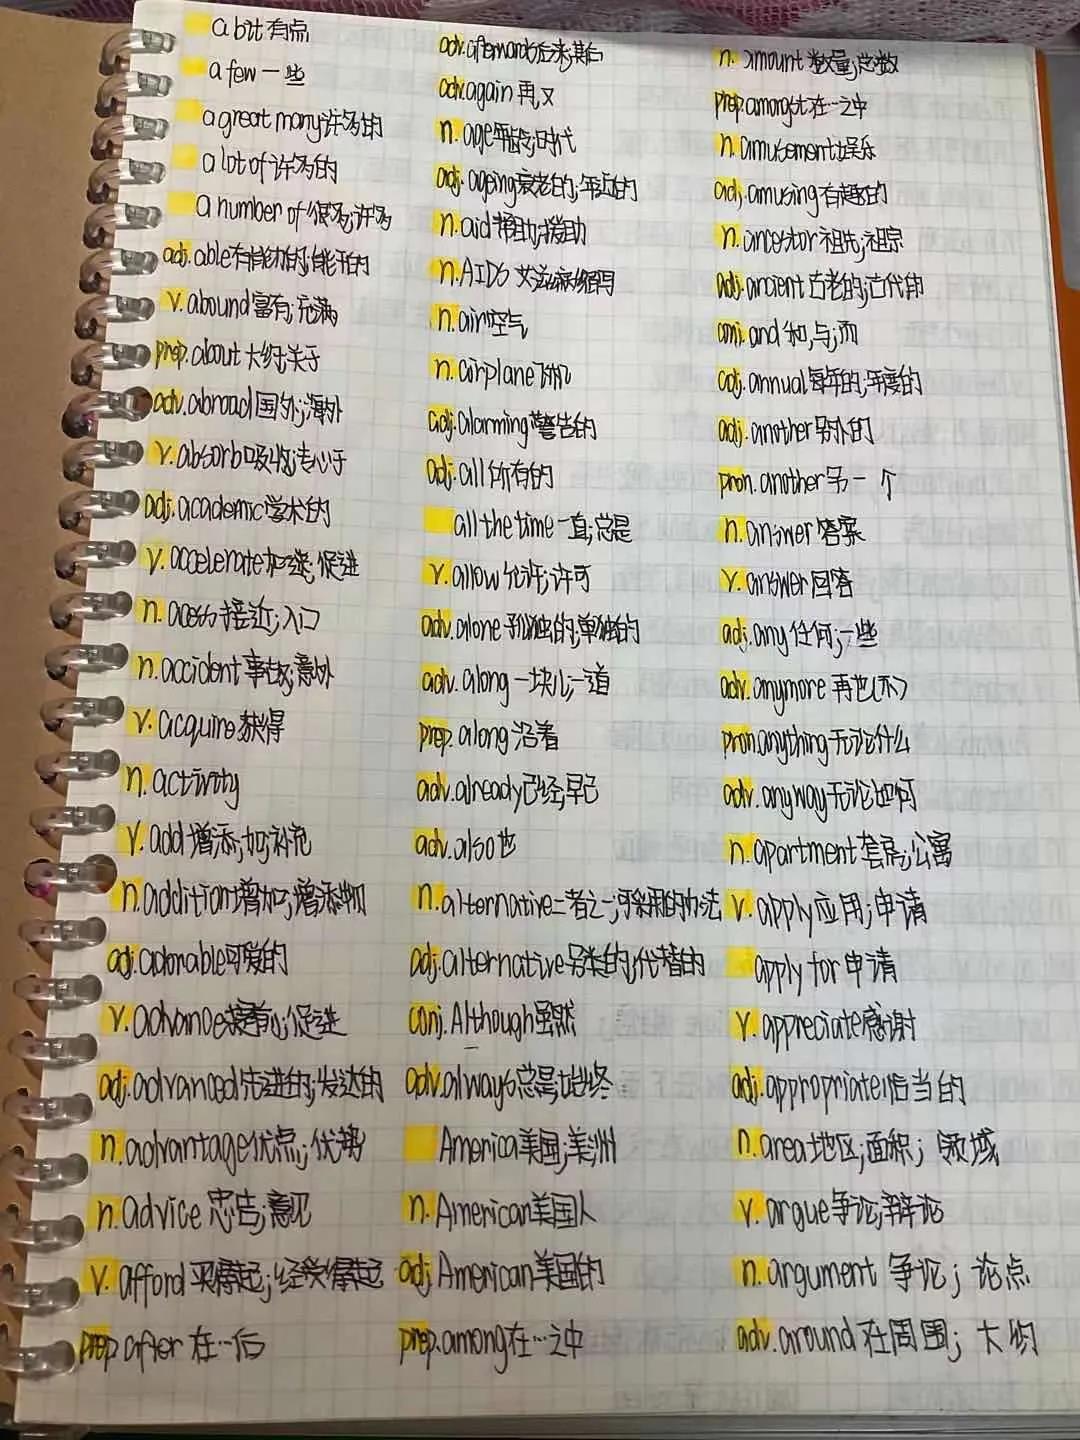 a bit 有点
a few 一些
a great many 许多的
a lot of 许多的
a number of 很多;许多
adj. able 有能力的;能干的
v. abound 富有;充满
prep. about 大约;关于
adv. abroad 国外;海外
v. absorb 吸收;专心于
adj. academic 学术的
v. accelerate 加速;促进
n. acess 接近;入口
n. accident 事故;意外
v. acquire 获得
n. activity
v. add 增添;加;补充
n. addition 增加;增添物
adj. adorable 可爱的
v. advance 促进
adj. advanced 先进的;发达的
n. advantage 优点;优势
n. advice 忠告;意见
v. afford 买得起;经受得起
prep. after 在…后
adv. afterwards 后来;其后
adv. again 再,又
n. age 年龄;时代
adj. ageing 衰老的;年迈的
n. aid 帮助;援助
n. AIDS 艾滋病缩写
n. air 空气
n. airplane 飞机
adj. alarming 警告的
adj. all 所有的
all the time 一直;总是
v. allow 允许;许可
adv. alone 孤独的;单独的
adv. along 一块儿;一道
prep. along 沿着
adv. already 已经;早已
adv. also 也
n. alternative 二者之一;可采用的办法
adj. alternative 另类的;代替的
conj. Although 虽然
adv. always 总是;始终
America 美国;美洲
n. American 美国人
adj American 美国的
prep. among 在…之中
n. amount 数量;总数
prep. amongst 在…之中
n. amusement 娱乐
adj. amusing 有趣的
n. ancestor 祖先;祖宗
adj. ancient 古老的;古代的
conj. and 和,与;而
adj. annual 每年的;年度的
adj. another 另外的
pron. another 另一个
n. answer 答案
v. answer 回答
adj. any 任何;一些
adv. anymore 再也(不)
pron. anything 无论什么
adv. anyway 无论如何
n. apartment 套房;公寓
v. apply 应用;申请
apply for 申请
v. appreciate 感谢
adj. appropriate 恰当的
n. area 地区;面积;领域
v. argue 争论;辩论
n. argument 争论;论点
adv. around 在周围;大约